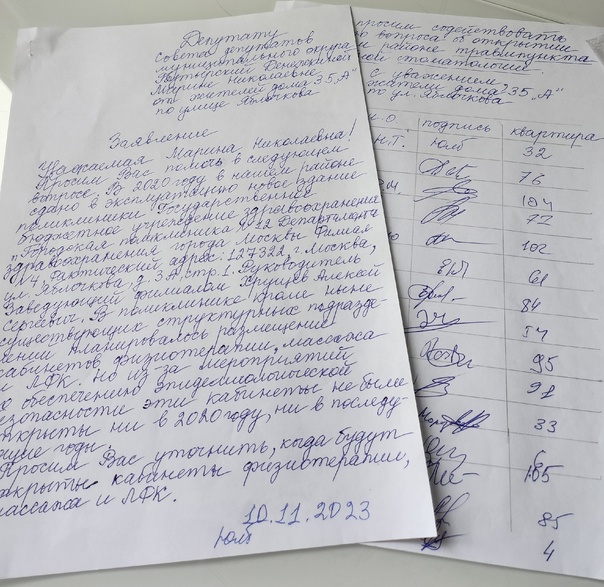 Депутату
Совета депутатов
муниципального округа
Бутырский Венгеркиной
Марине Николаевне
от жителей дома "35 "А"
по улице Яблочкова
Заявление
Уважаемая Марина Николаевна!
Просим Вас помочь в следующем
вопросе. В 2020 году в нашем районе
сдано в эксплуатацию новое здание
поликлиники Государственное
бюджетное учреждение здравоохранения
"Городская поликлиника №12 Департамента
здравоохранения города Москвы Филиал
№4. Фактический адрес: 127322, г. Москва,
ул. Яблочкова д. 3 А стр. 1. Руководитель
Заведующий филиалом Хрущев Алексей
Сергеевич. В поликлинике кроме ныне
существующих структурных подразде-
лений планировалось размещение
кабинетов физиотерапии, массажа
и ЛФК. Но из-за мероприятий
по обеспечению эпидемиологической
безопасности эти кабинеты не были
открыты ни в 2020 году, ни в последу-
ющие годы.
Просим Вас уточнить, когда будут
открыты кабинеты физиотерапии,
массажа и ЛФК.
10.11.2023
просим содействовать
вопроса об открытии
районе травмпункта
стоматологии.
с уважением
жители дома "35 "А"
по ул. Яблочкова
И.О. подпись квартира
Н.Т. 32
76
104
77
102
61
84
54
95
91
33
6
105
85
4